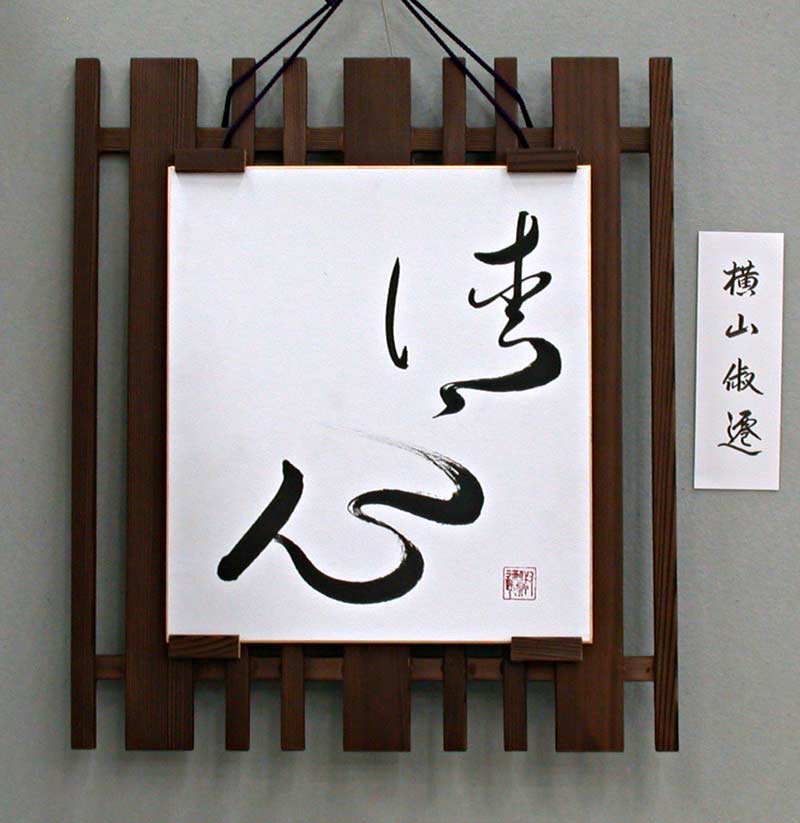 清心
横山俶遷